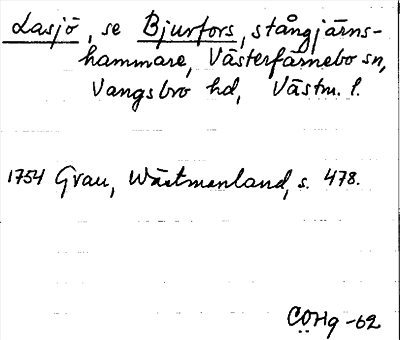 Lasjö, se Bjurfors, stångjärns-
hammare, Västerfärnebo sn,
Vangsbro hd, Västm. l.
1754 Grau, Wästmanland, s. 478.
CÖHg -62